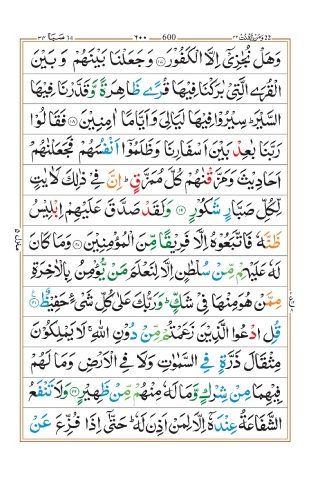 ومن يقنت ٢٢ 600 ٦٠٠ سبا ٣٤
وَهَلْ نُجٰزِيْۤ اِلَّا الْكَفُوْرَ ۝١٧ وَجَعَلْنَا بَيْنَهُمْ وَبَيْنَ
الْقُرَى الَّتِيْ بٰرَكْنَا فِيْهَا قُرًى ظَاهِرَةً وَّقَدَّرْنَا فِيْهَا
السَّيْرَ ؕ سِيْرُوْا فِيْهَا لَيَالِيَ وَاَيَّامًا اٰمِنِيْنَ ۝١٨ فَقَالُوْا
رَبَّنَا بٰعِدْ بَيْنَ اَسْفَارِنَا وَظَلَمُوْۤا اَنْفُسَهُمْ فَجَعَلْنٰهُمْ
اَحَادِيْثَ وَمَزَّقْنٰهُمْ كُلَّ مُمَزَّقٍ ؕ اِنَّ فِيْ ذٰلِكَ لَاٰيٰتٍ
لِّكُلِّ صَبَّارٍ شَكُوْرٍ ۝١٩ وَلَقَدْ صَدَّقَ عَلَيْهِمْ اِبْلِيْسُ
ظَنَّهٗ فَاتَّبَعُوْهُ اِلَّا فَرِيْقًا مِّنَ الْمُؤْمِنِيْنَ ۝٢٠ وَمَا كَانَ
لَهٗ عَلَيْهِمْ مِّنْ سُلْطٰنٍ اِلَّا لِنَعْلَمَ مَنْ يُّؤْمِنُ بِالْاٰخِرَةِ
مِمَّنْ هُوَ مِنْهَا فِيْ شَكٍّ ؕ وَرَبُّكَ عَلٰى كُلِّ شَيْءٍ حَفِيْظٌ ۝٢١
قُلِ ادْعُوا الَّذِيْنَ زَعَمْتُمْ مِّنْ دُوْنِ اللّٰهِ ۚ لَا يَمْلِكُوْنَ
مِثْقَالَ ذَرَّةٍ فِي السَّمٰوٰتِ وَلَا فِي الْاَرْضِ وَمَا لَهُمْ
فِيْهِمَا مِنْ شِرْكٍ وَّمَا لَهٗ مِنْهُمْ مِّنْ ظَهِيْرٍ ۝٢٢ وَلَا تَنْفَعُ
الشَّفَاعَةُ عِنْدَهٗۤ اِلَّا لِمَنْ اَذِنَ لَهٗ ؕ حَتّٰۤى اِذَا فُزِّعَ عَنْ